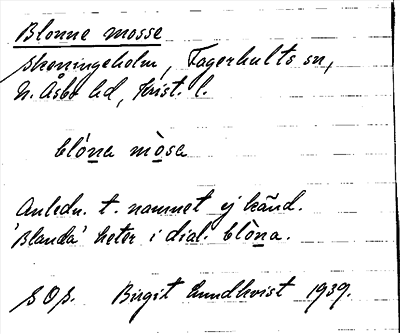 Blonne mosse
Skoningeholm, Fagerhults sn,
N. Åsbo hd, Krist. l.
blóna mòsa
Anledn. t. namnet ej känd.
'Blanda' heter i dial. blòna.
S O S. Birgit Lundkvist 1939.